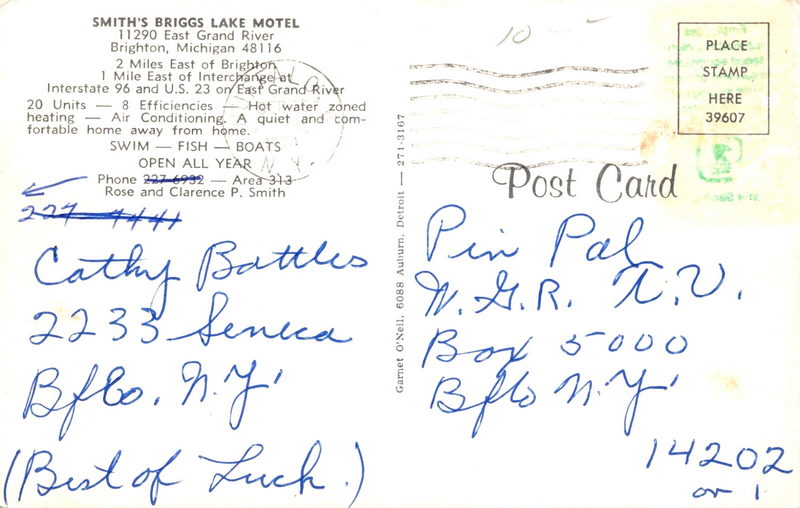 SMITH'S BRIGGS LAKE MOTEL
11290 East Grand River
Brighton, Michigan 48116
2 Miles East of Brighton
1 Mile East of Interchange at
Interstate 96 and U.S. 23 on East Grand River
20 Units — 8 Efficiencies — Hot water zoned
heating — Air Conditioning. A quiet and com-
fortable home away from home.
SWIM — FISH — BOATS
OPEN ALL YEAR
Phone 227-6932 — Area 313
Rose and Clarence P. Smith
227 4441
Cathy Battles
2233 Seneca
Bflo. N.Y.
(Best of Luck.)
Garnet O'Neil, 6088 Auburn, Detroit — 271-3167
10
PLACE
STAMP
HERE
39607
Post Card
Pin Pal
W.G.R. T.V.
Box 5000
Bflo N.Y.
14202
or 1